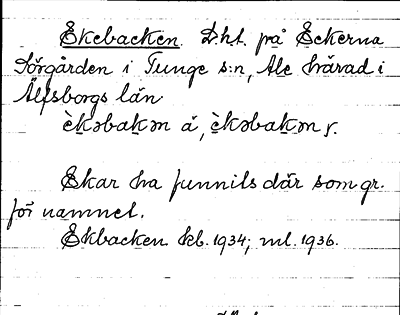 Ekebacken. Dhl. på Eckerna
Sörgården i Tunge s:n, Ale härad i
Älfsborgs län
ὲkəbakən á, ὲkəbakən γ.
Ekar ha funnits där som gr.
för namnet.
Ekbacken kb. 1934; ml. 1936.